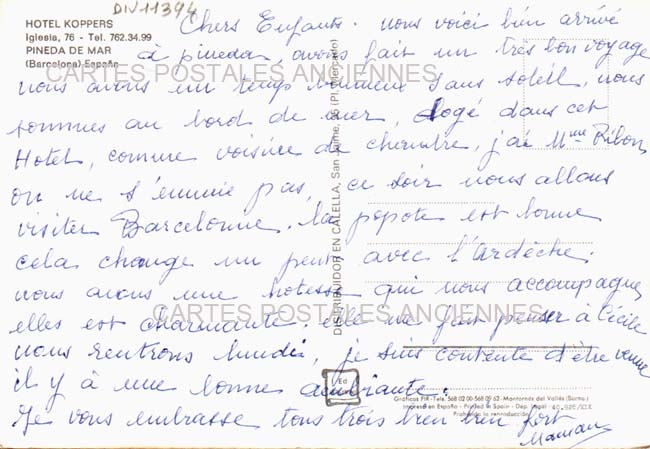 DIV11394
HOTEL KOPPERS
Iglesia, 76 - Tel. 762.34.99
PINEDA DE MAR
(Barcelona) España
Chers Enfants. nous voici bien arrivé
à pineda, avons fait un très bon voyage
nous avons un temps sans soleil, nous
sommes au bord de mer, logé dans cet
Hotel, comme voisine de chambre, j'ai Mme
on ne s'ennuie pas, ce soir nous allons
visiter Barcelonne. la popote est bonne
cela change un peut avec l'Ardèche.
nous avons une hotesse qui nous accompagne,
elles est charmante. elle me fait penser à Cécile
nous rentrons lundi, je suis contente d'être venue
il y à une bonne ambiante.
Je vous embrasse tous trois bien bien fort
Maman
CARTES POSTALES ANCIENNES
CARTES POSTALES ANCIENNES
DISTRIBUIDOR EN CALELLA, San Jaime, (Pl. Mercado)
Ed
Gráficas FIR - Tels. 568 02 00-568 09 62 - Montornés del Vallés (Barna.)
Impreso en España - Printed in Spain - Dep. legal
Prohibida la reproducción